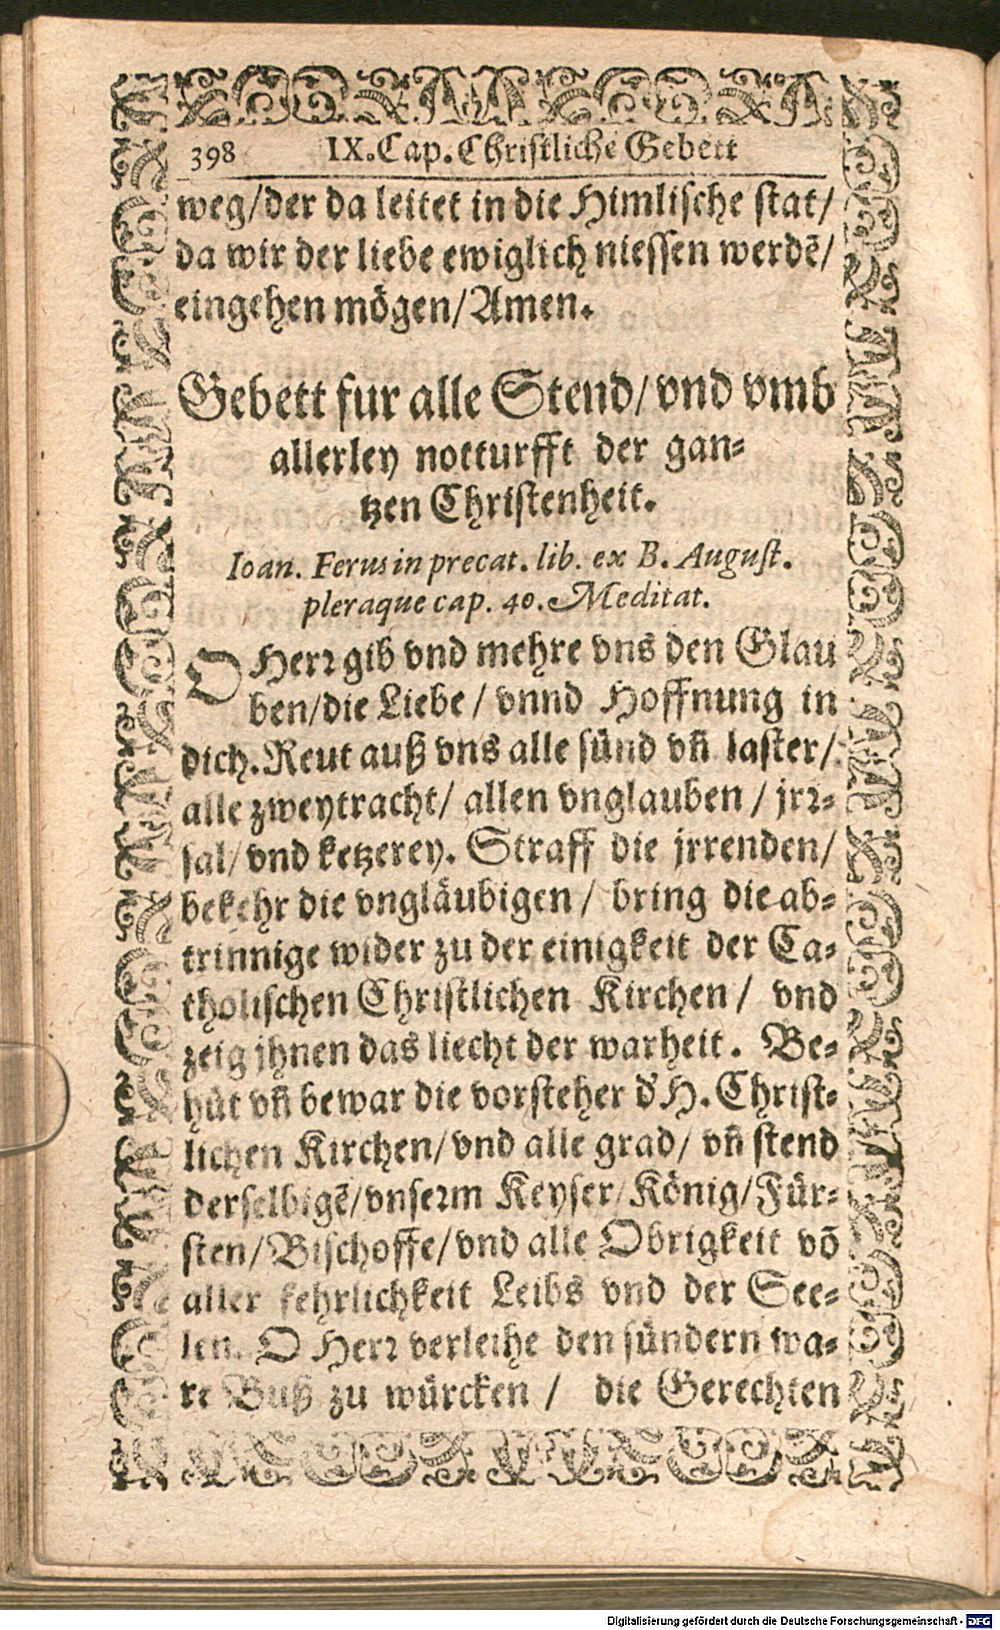 398 IX. Cap. Christliche Gebett
weg/der da leitet in die Himlische stat/
da wir der liebe ewiglich niessen werdẽ/
eingehen mögen/Amen.
Gebett fur alle Stend/ vnd vmb
allerley notturfft der gan-
tzen Christenheit.
Ioan. Ferus in precat. lib. ex B. August.
pleraque cap. 40. Meditat.
O Herr gib vnd mehre vns den Glau
ben/die Liebe/ vnnd Hoffnung in
dich. Reut auß vns alle sünd vñ laster/
alle zweytracht/ allen vnglauben / jrr-
sal/ vnd ketzerey. Straff die jrrenden/
bekehr die vngläubigen/ bring die ab-
trinnige wider zu der einigkeit der Ca-
tholischen Christlichen Kirchen/ vnd
zeig jhnen das liecht der warheit. Be-
hüt vñ bewar die vorsteher d' H. Christ-
lichen Kirchen/ vnd alle grad/ vñ stend
derselbigẽ/vnserm Keyser/König/Für-
sten/Bischoffe/vnd alle Obrigkeit võ
aller fehrlichkeit Leibs vnd der See-
len. O Herr verleihe den sündern wa-
re Buß zu würcken / die Gerechten
Digitalisierung gefördert durch die Deutsche Forschungsgemeinschaft - DFG